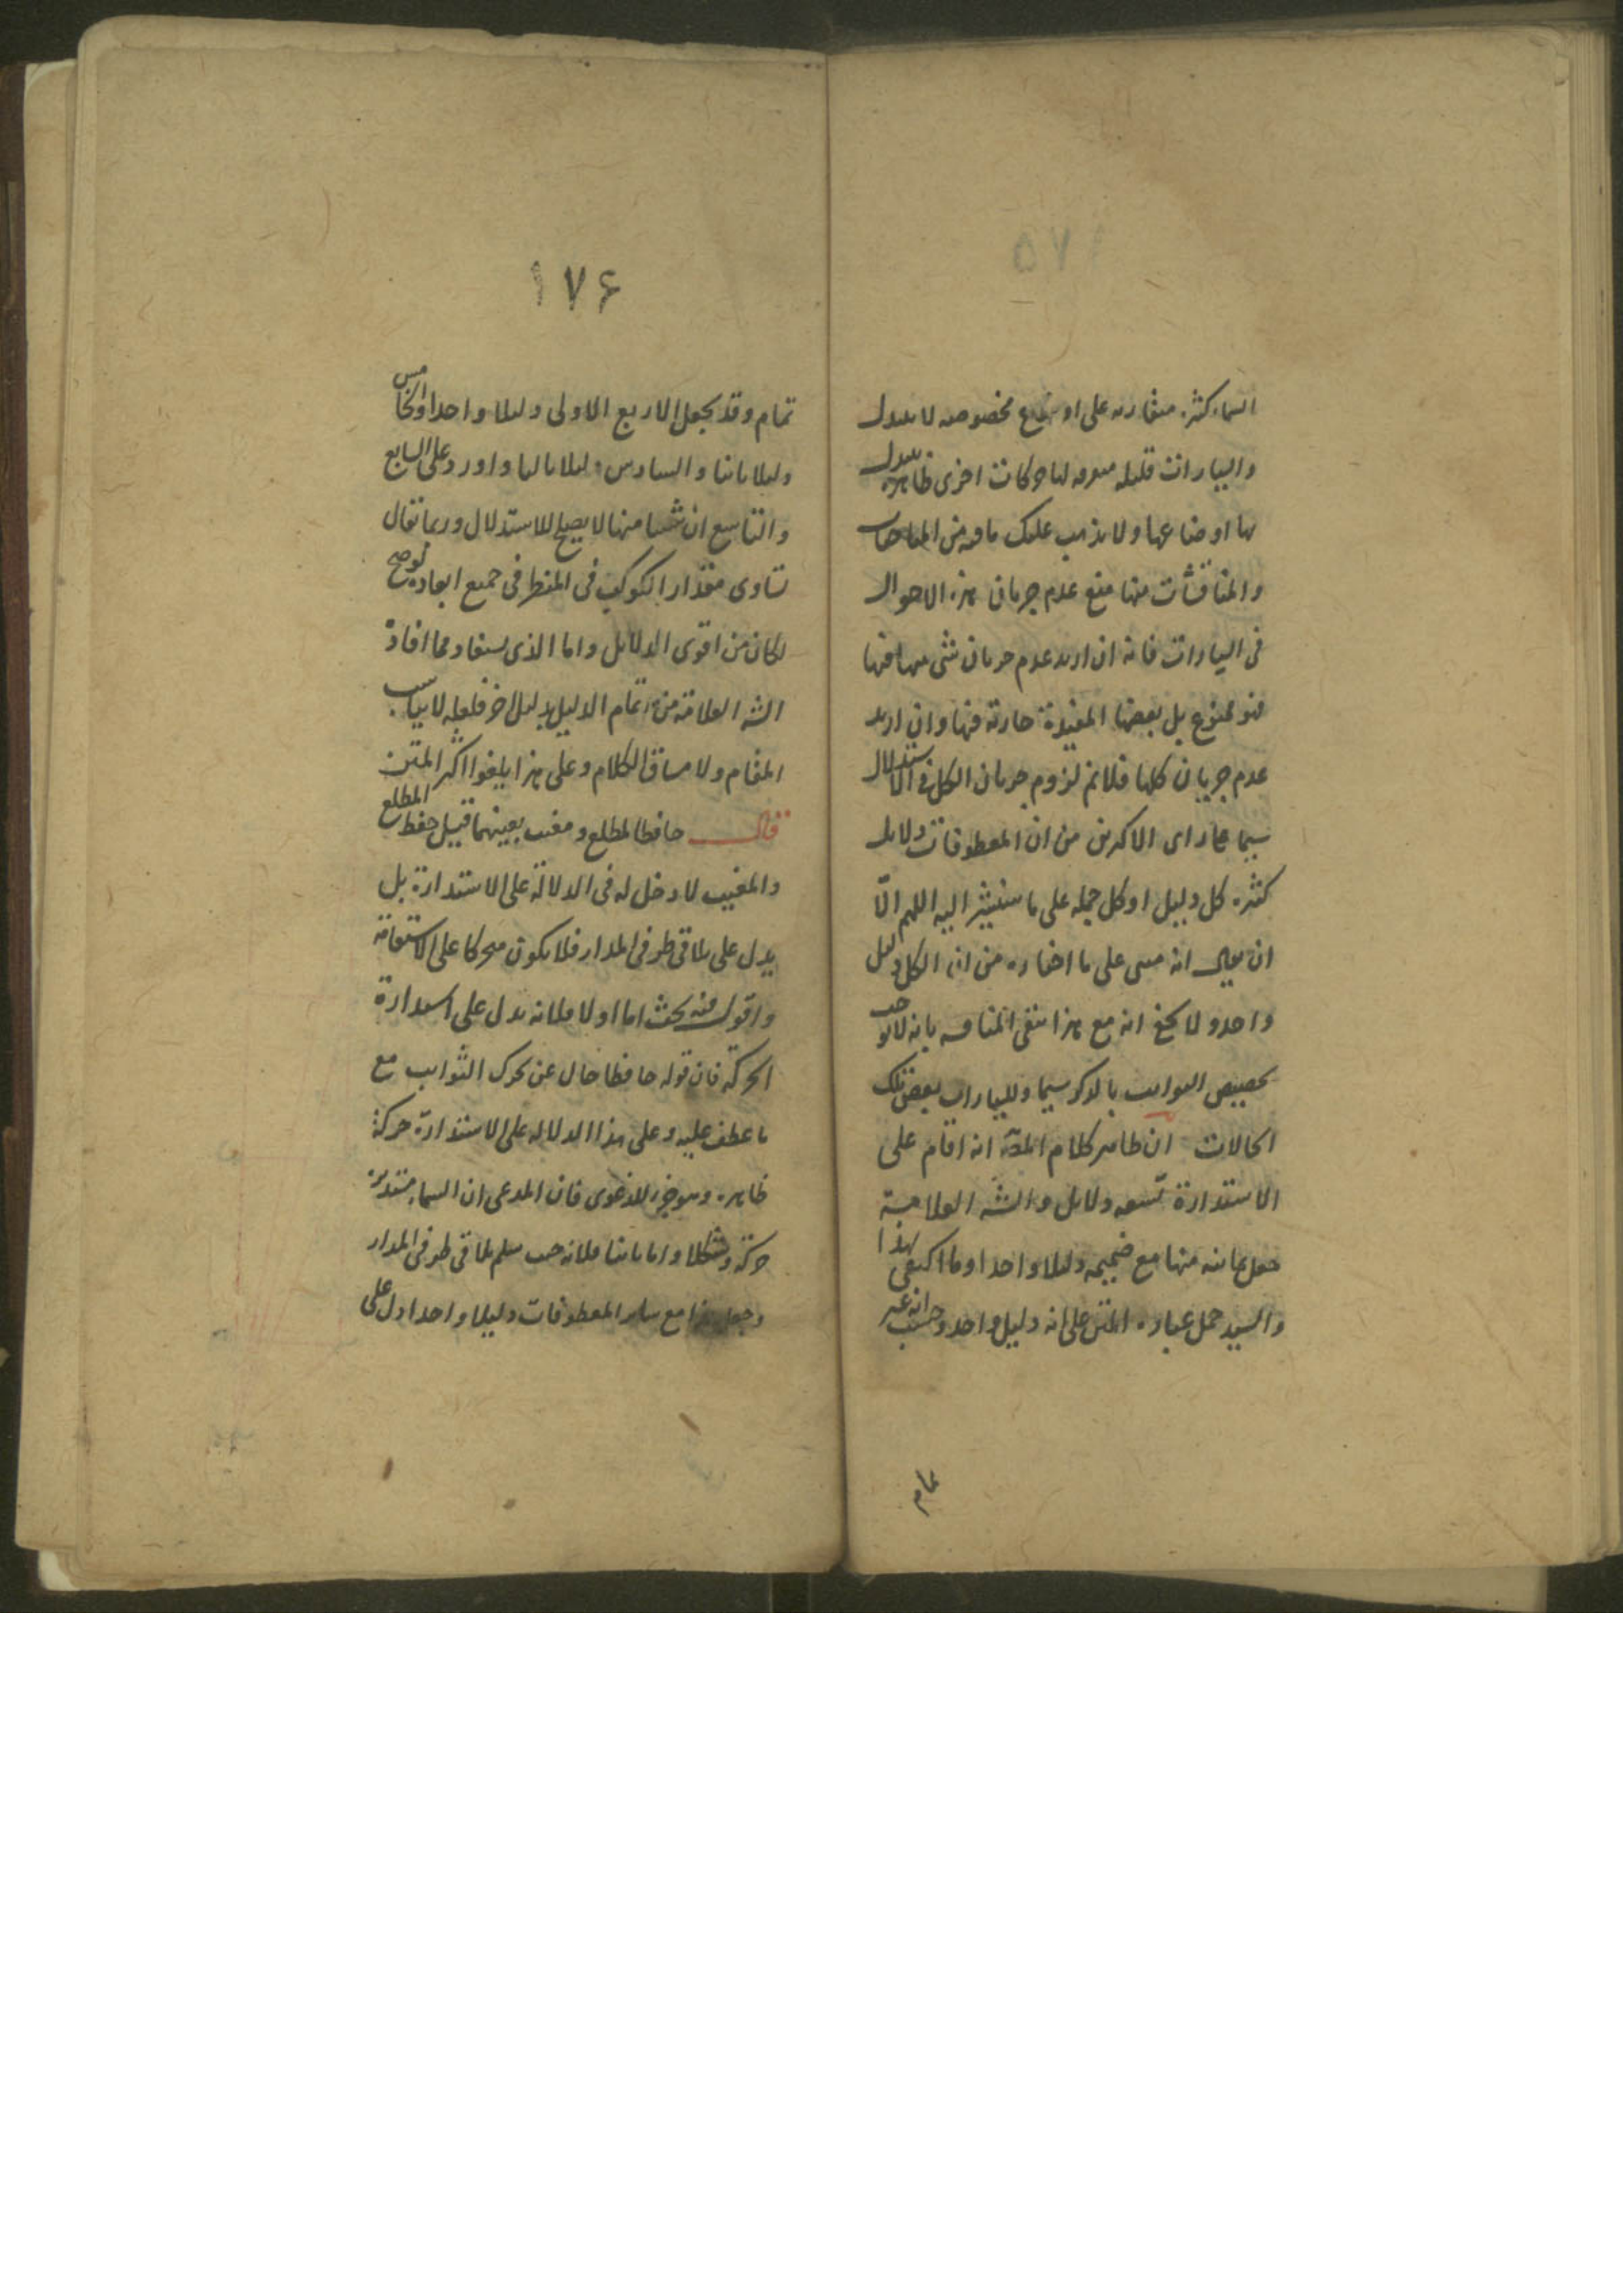 ١٧٥
السماء كثيرة متقاربه على اوضاع مخصوصه لا تتبدل
والسيارات قليله لها حركات اخرى ظاهرة تتبدل
بها اوضاعها ولا يذهب عليك ما فيه من
والمناقشات منها منع عدم جريان هذه الاحوال
فى السيارات فانه ان اريد عدم جريان شئ منها فيها
فهو ممنوع بل بعضها المفيدة جارية فيها وان اريد
عدم جريان كلها فلا نم لزوم جريان الكل فى الاستدلال
سيما على راى الاكثرين من ان المعطوفات دلايل
كثيرة كل دليل او كل جمله على ما سنشير اليه اللهم الّا
ان يقال انه مبنى على ما اختاره من ان الكل دليل
واحد ولا يخفى انه مع هذا تبقى المناقشه بانه لا يوجب
تخصيص الثوابت بالذكر سيما وللسيارات بعض تلك
الحالات ان ظاهر كلام المصَ انه اقام على
الاستدارة تسعه دلايل والشه العلامة
جعل ثمانيه منها مع ضميمه دليلا واحدا وما اكتفى بهذا
والسيد حمل عباره المتن على انه دليل واحد وحسب انه غير
تمام
١٧۶
تمام وقد يجعل الاربع الاولى دليلا واحدا والخامس
دليلا ثانيا والسادس دليلا ثالثا واورد على السابع
والتاسع ان شيئا منها لا يصلح للاستدلال وربما يقال
تساوى مقدار الكوكب فى المنظر فى جميع ابعاده لو صح
لكان من اقوى الدلايل واما الذى يستفاد مما افادة
الشه العلامة من اتمام الدليل بدليل اخر فلعله لا يناسب
المقام ولا مساق الكلام وعلى هذا يلغوا اكثر المتن
قال حافظا لمطلع ومغيب بعينهما قيل حفظ المطلع
والمغيب لا دخل له فى الدلالة على الاستدارة بل
يدل على تلاقى طرفى المدار فلا يكون متحركا على الاستقامة
واقول فيه بحث اما اولا فلانه يدل على استدارة
الحركة فان قوله حافظا حال عن تحرك الثوابت مع
ما عطف عليه وعلى هذا الدلاله على الاستدارة حركة
ظاهره وهو جزء للدعوى فان المدعى ان السماء مستديرة
حركة وشكلا واما ثانيا فلانه حيث سلم تلاقى طرفى المدار
وجعل هذا مع ساير المعطوفات دليلا واحدا دل على